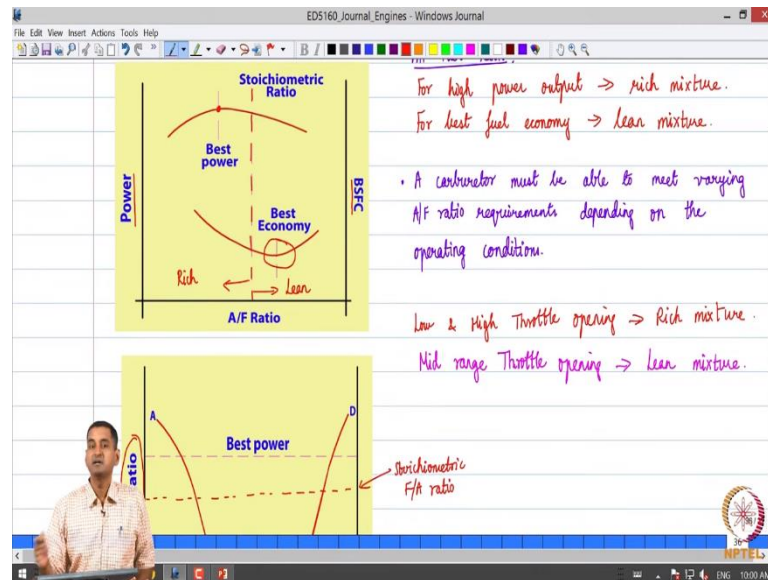 ED5160_Journal_Engines - Windows Journal
File Edit View Insert Actions Tools Help
Stoichiometric
Ratio
Best
power
Power
BSFC
Best
Economy
Rich
Lean
A/F Ratio
For high power output → rich mixture.
For best fuel economy → lean mixture.
• A carburetor must be able to meet varying
A/F ratio requirements depending on the
operating conditions.
Low & High Throttle opening → Rich mixture.
Mid range Throttle opening → Lean mixture.
A
D
Best power
atio
Stoichiometric
F/A ratio
36
NPTEL
ENG 10:00 AM